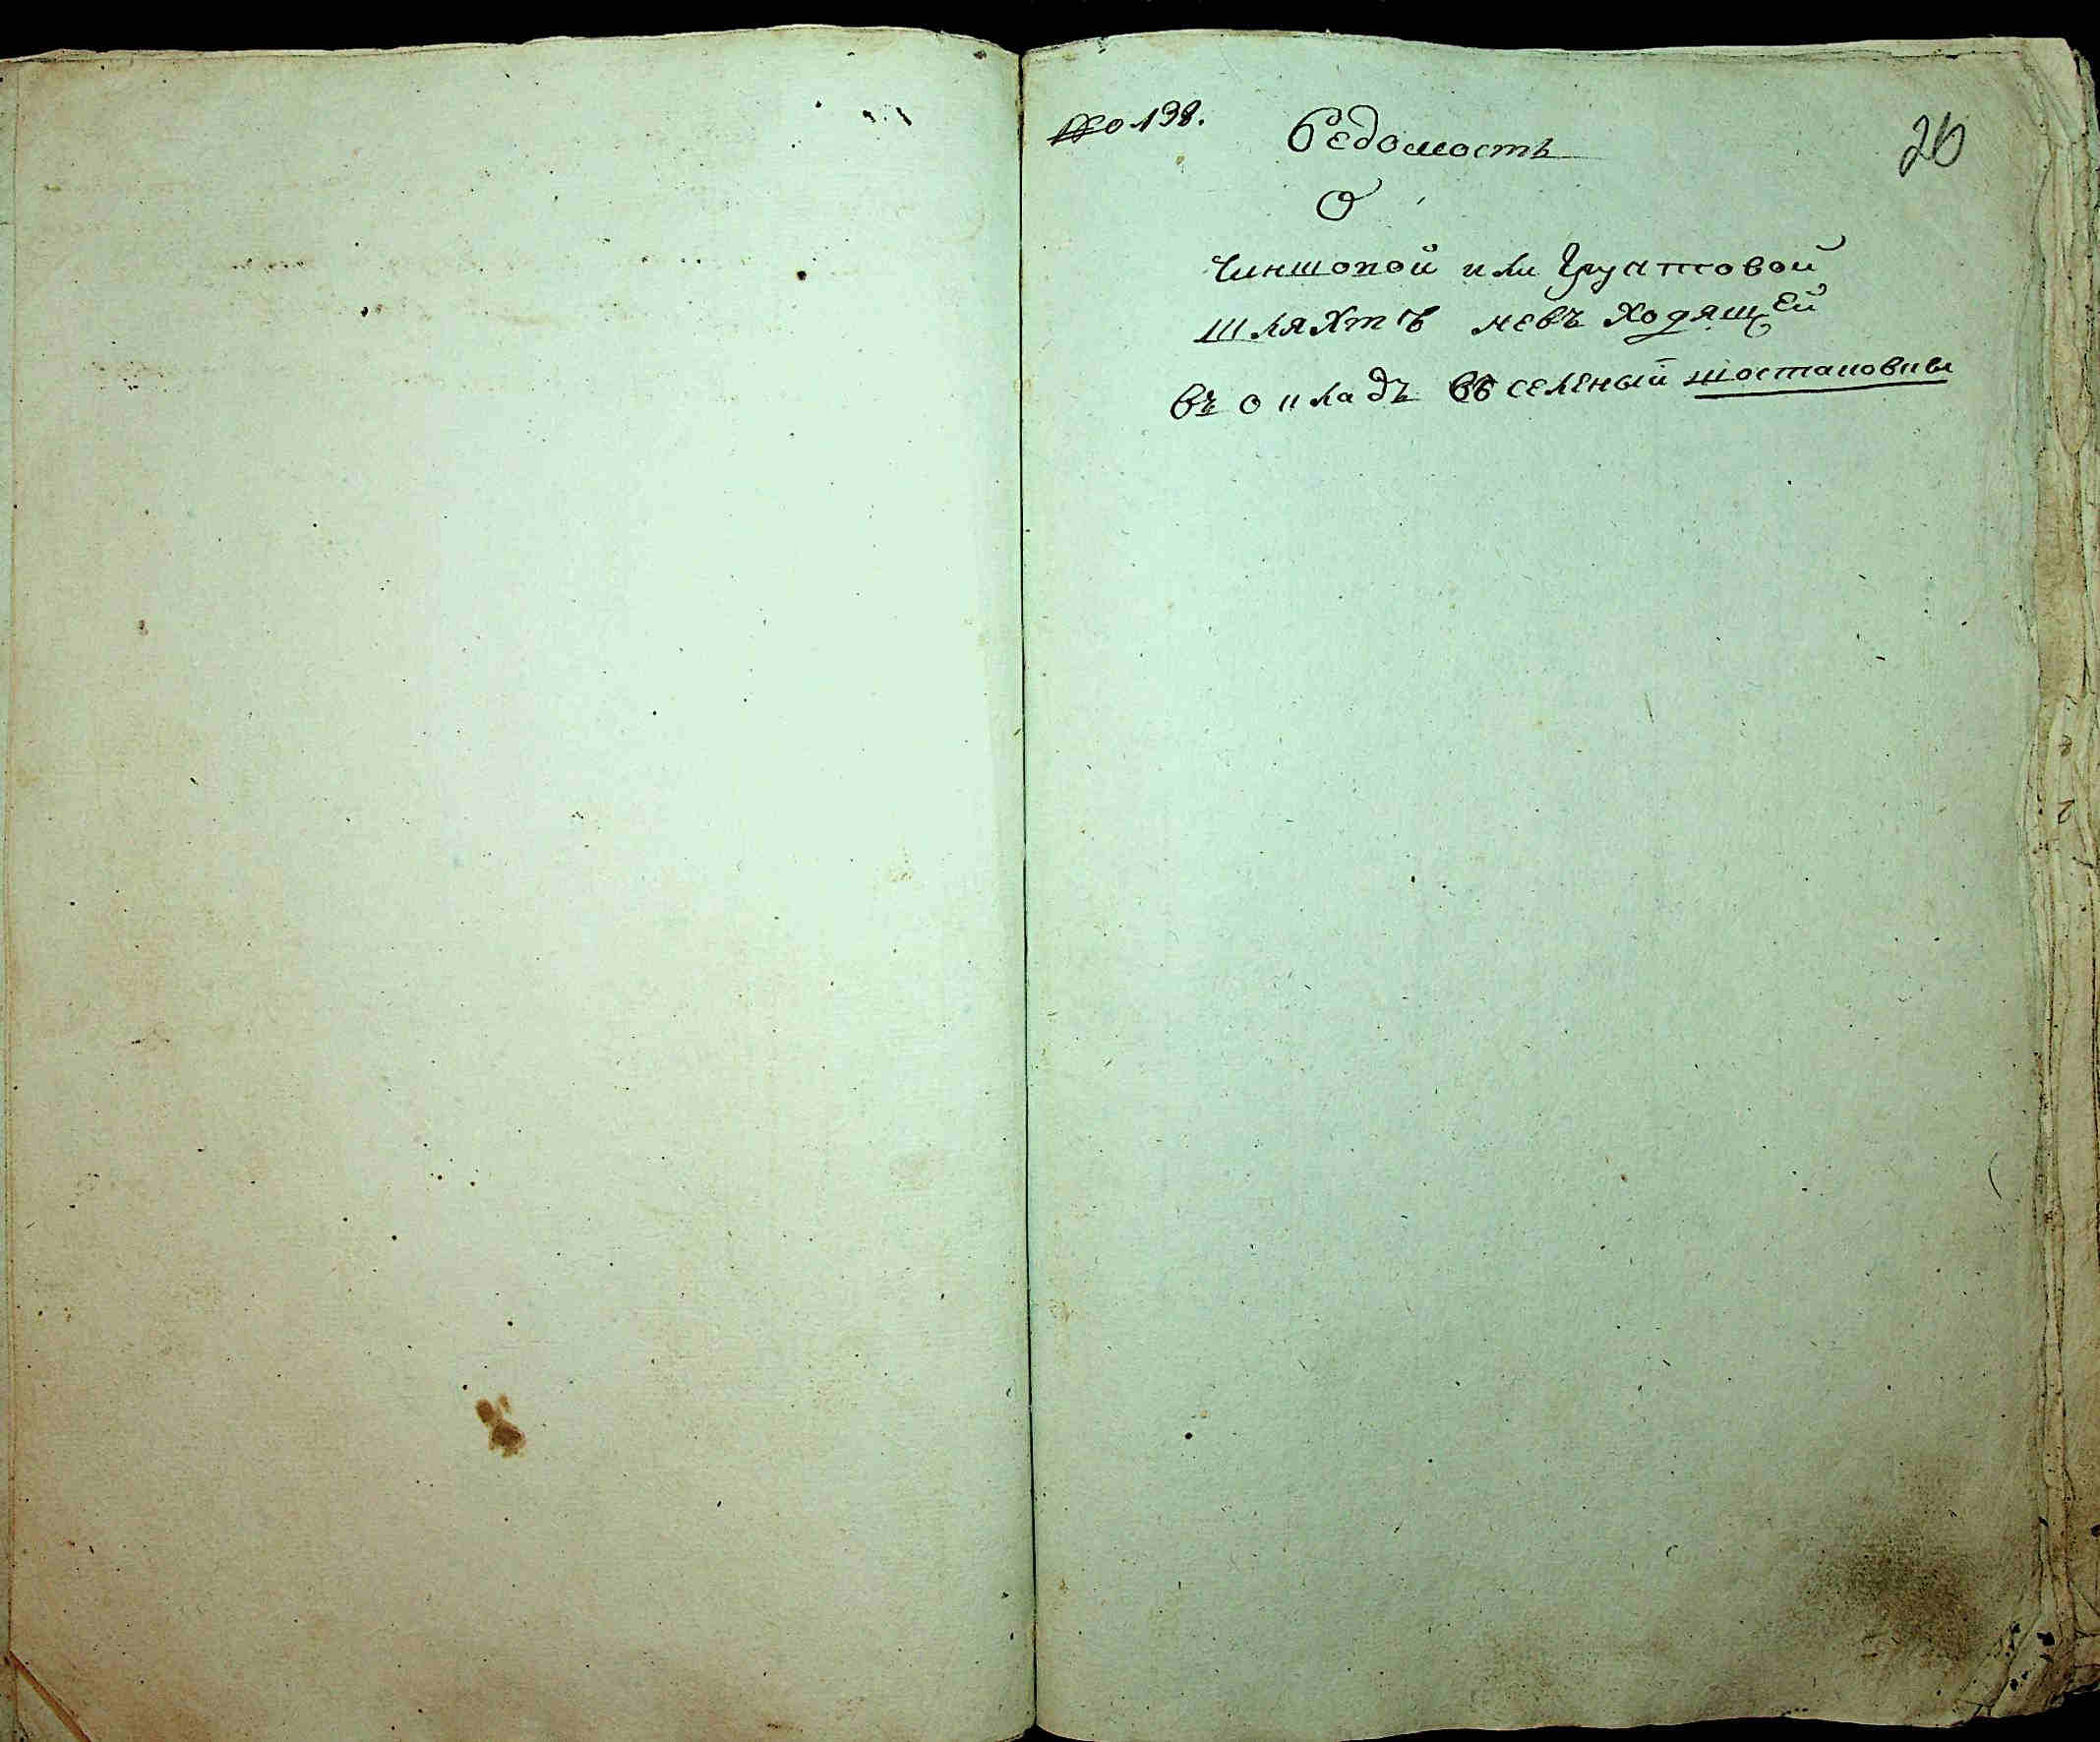 № 138.
Ведомость
20
О
Чиншовой или Грунтовой
шляхтѣ невъ ходящей
въ окладъ въ селеный шостаковцы